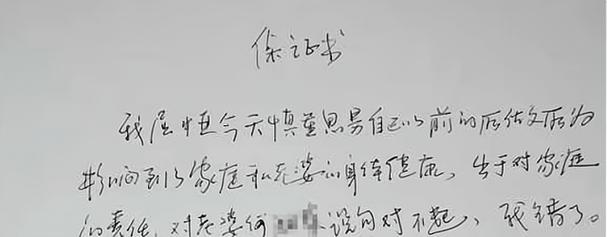 保证书
我屈恒今天慎重思易自己以前的所做所为
影响到了家庭和老婆的身体健康，出于对家庭
的责任，对老婆何 说句对不起，我错了。